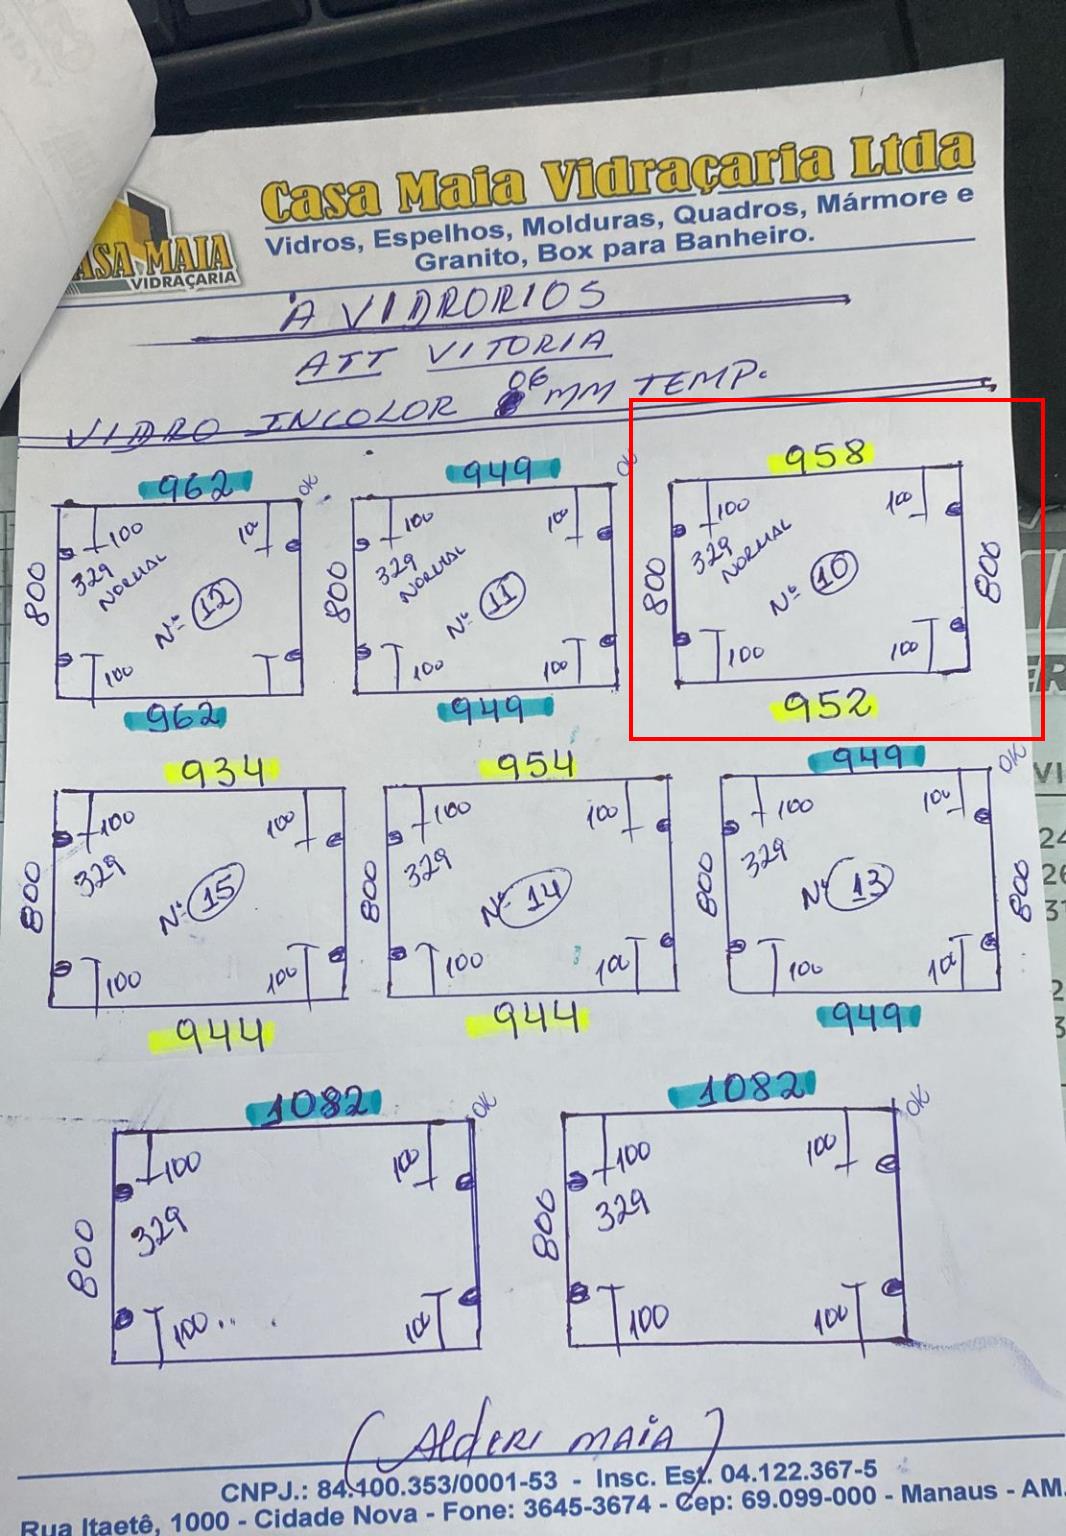 Casa Maia Vidraçaria Ltda
Vidros, Espelhos, Molduras, Quadros, Mármore e
Granito, Box para Banheiro.
ASA MAIA
VIDRAÇARIA
A VIDRORIOS
ATT VITORIA
VIDRO INCOLOR 06 MM TEMP.
962
OK
800
100
100
329
NORMAL
Nº 12
100
962
949
OK
800
100
100
329
NORMAL
Nº 11
100
100
949
958
800
100
100
800
329
NORMAL
Nº 10
100
100
952
934
800
100
100
329
Nº 15
100
100
944
954
800
100
100
329
Nº 14
100
100
944
949
OK
800
100
100
800
329
Nº 13
100
100
949
1082
OK
800
100
100
329
100
100
1082
OK
800
100
100
329
100
100
(Alderi MAIA)
CNPJ.: 84.100.353/0001-53 - Insc. Est. 04.122.367-5
Rua Itaetê, 1000 - Cidade Nova - Fone: 3645-3674 - Cep: 69.099-000 - Manaus - AM.